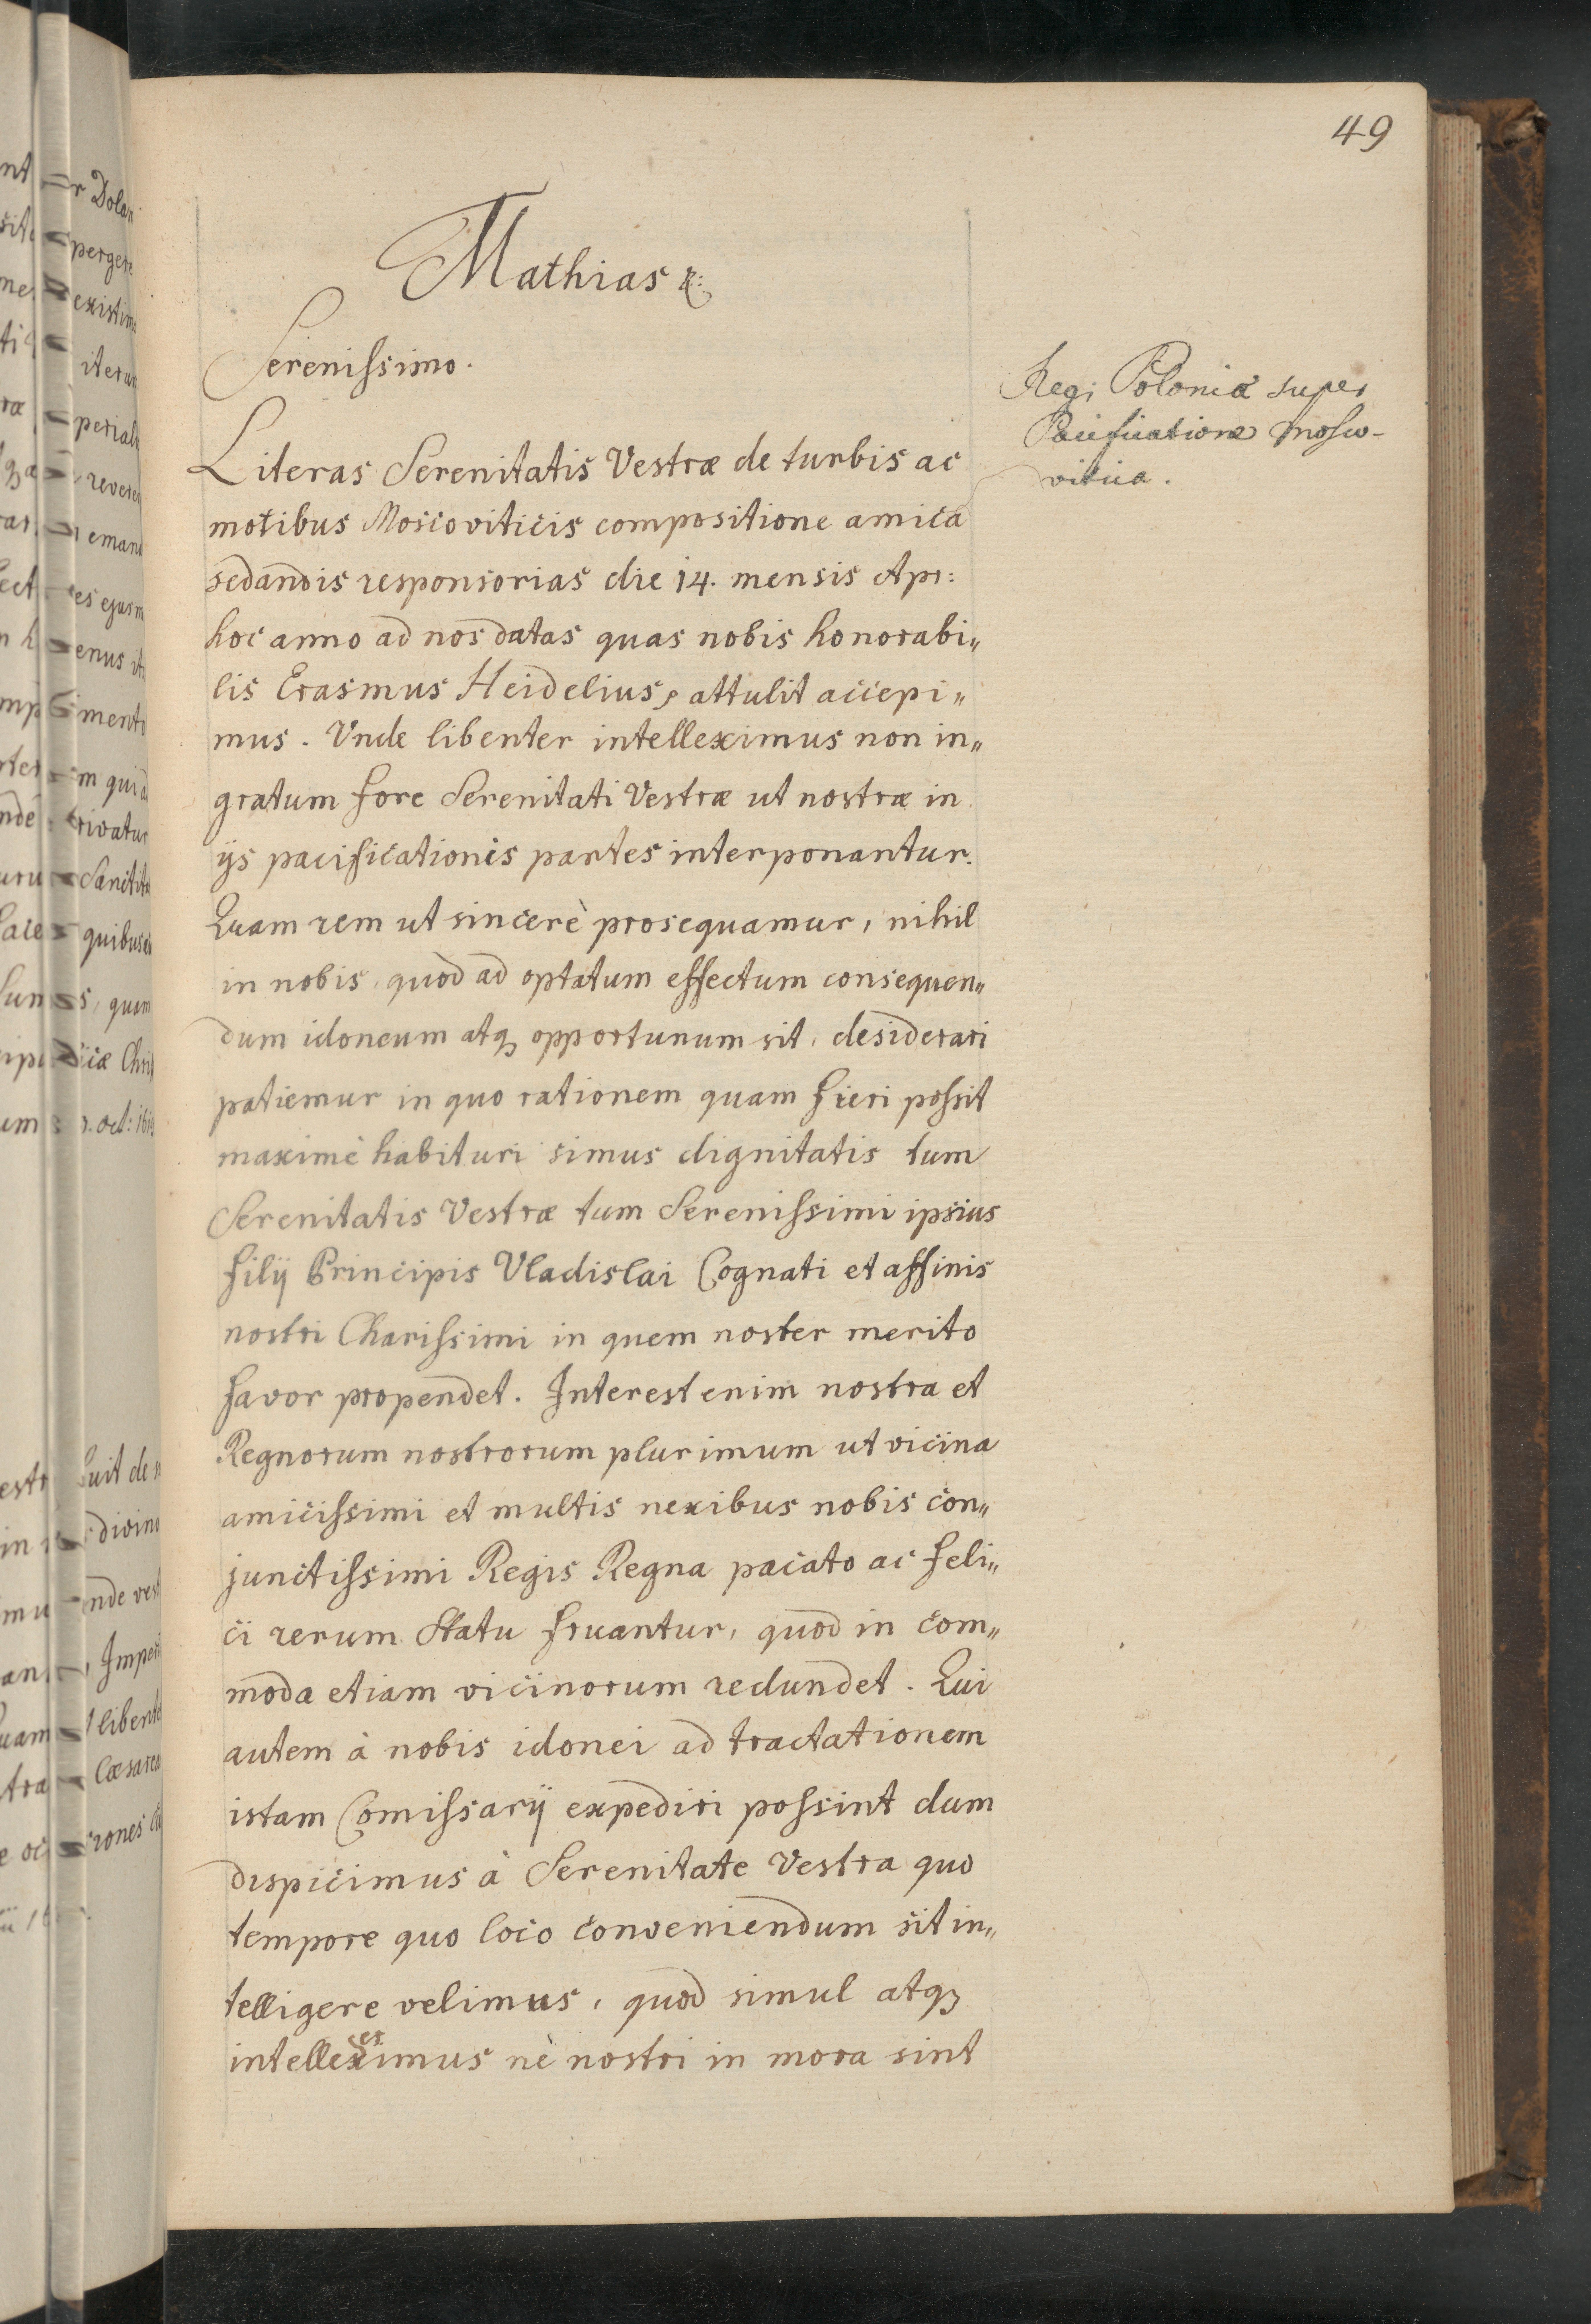 49
Mathias &:
Serenissimo.
Regi Poloniæ super
Pacificatione Mosco-
vitica.
Literas Serenitatis Vestræ de turbis ac
motibus Moscoviticis compositione amica
sedandis responsorias die 14. mensis Apr:
hoc anno ad nos datas quas nobis honorabi„
lis Erasmus Heidelius, attulit accepi„
mus. Unde libenter intelleximus non in„
gratum fore Serenitati Vestræ ut nostræ in
ijs pacificationis partes interponantur.
Quam rem ut sincerè prosequamur, nihil
in nobis, quod ad optatum effectum consequen„
dum idoneum atq3 opportunum sit, desiderari
patiemur in quo rationem quam fieri possit
maximè habituri simus dignitatis tum
Serenitatis Vestræ tum Serenissimi ipsius
filij Principis Vladislai Cognati et affinis
nostri Charissimi in quem noster merito
favor propendet. Interest enim nostra et
Regnorum nostrorum plurimum ut vicina
amicissimi et multis nexibus nobis con„
junctissimi Regis Regna pacato ac feli„
ci rerum statu fruantur, quod in com„
moda etiam vicinorum redundet. Qui
autem à nobis idonei ad tractationem
istam Comissarij expediri possint dum
dispicimus à Serenitate Vestra quo
tempore quo loco conveniendum sit in„
telligere velimus, quod simul atq3
er
intelleximus nè nostri in mora sint